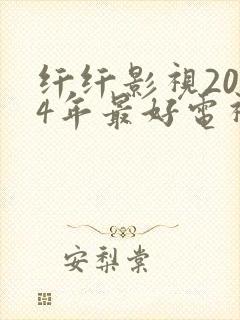 纤纤影视20
4年最好电视
安梨棠